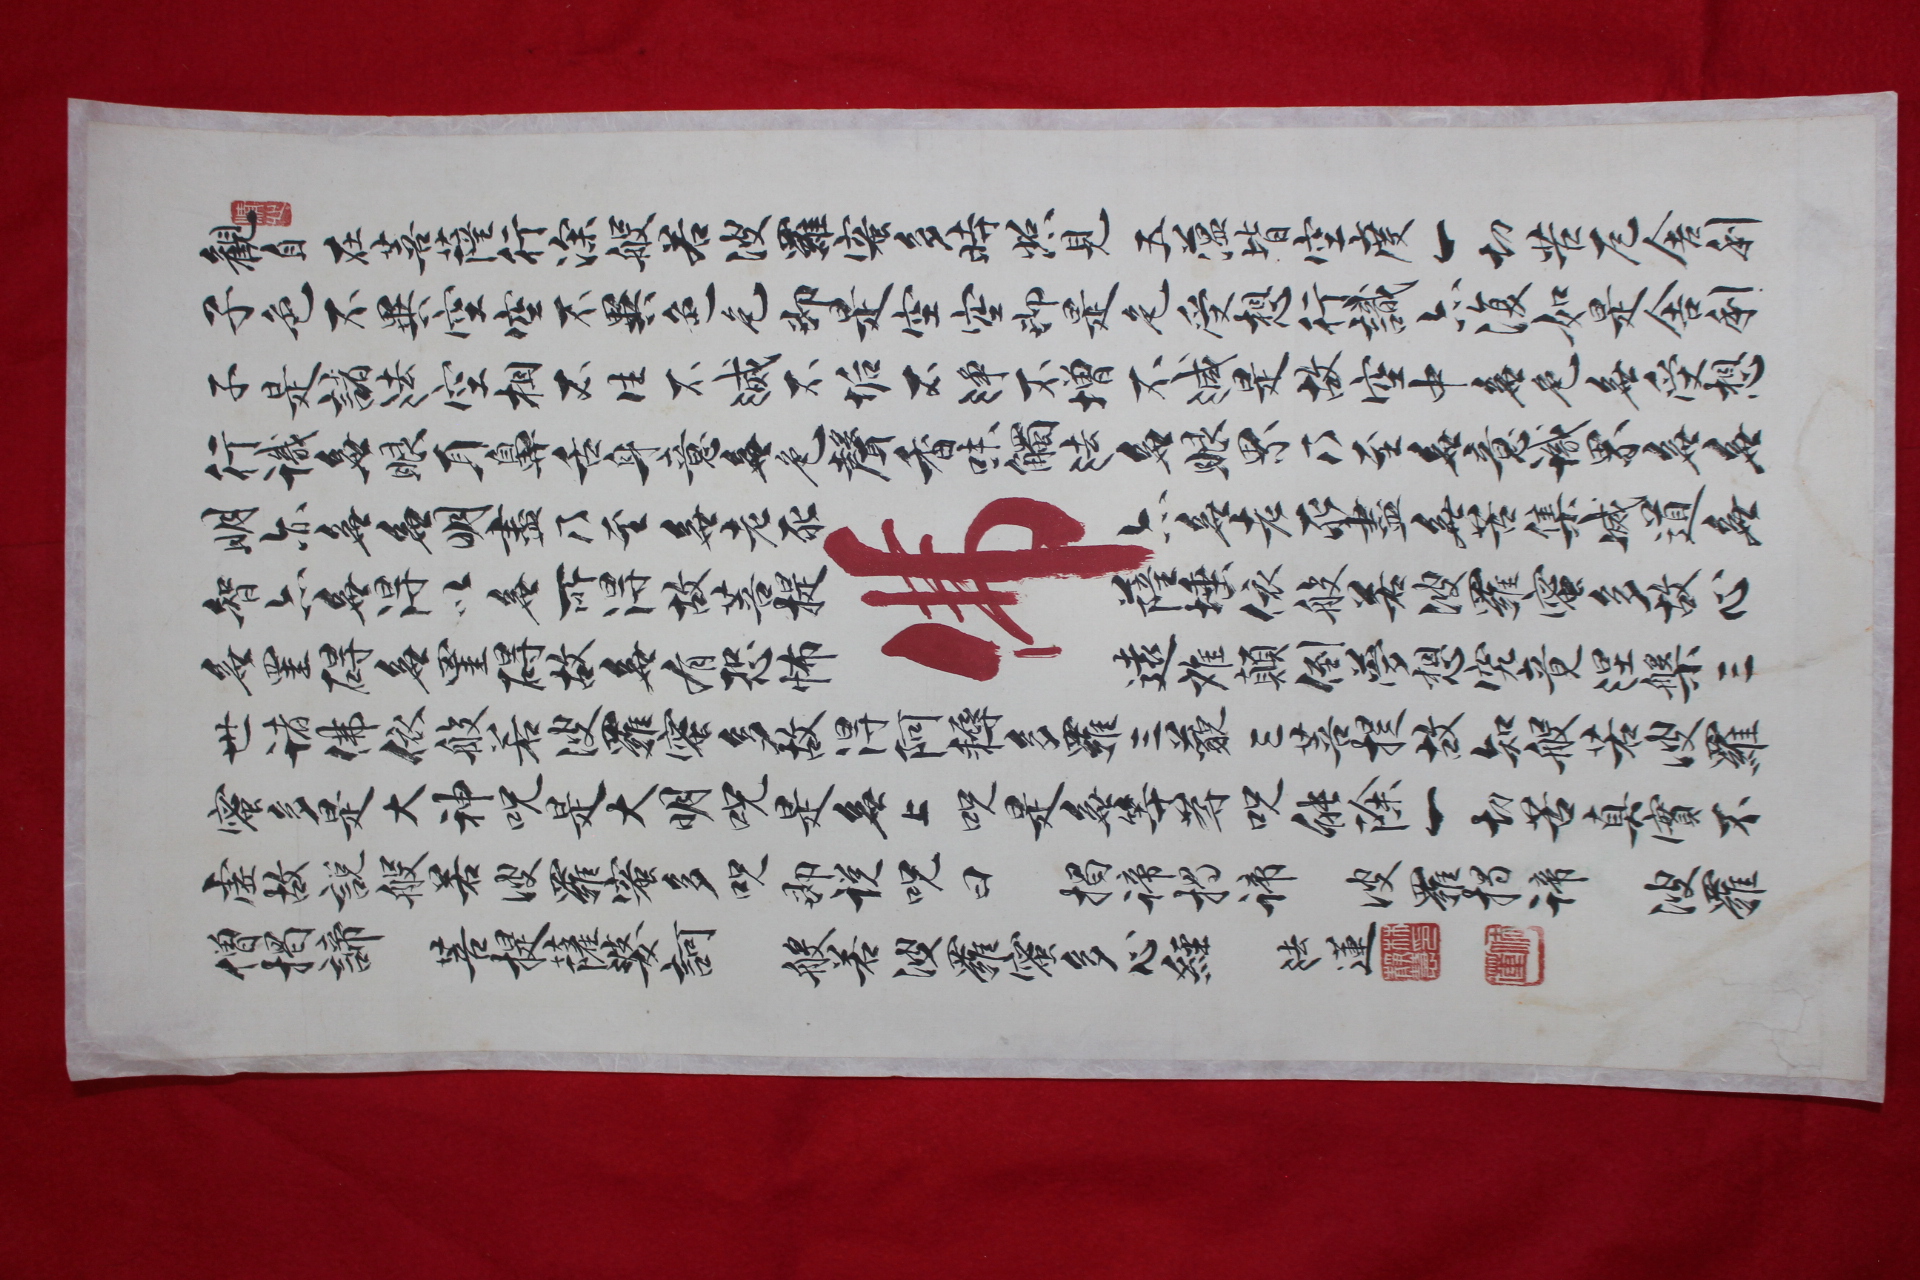 觀自在菩薩行深般若波羅蜜多時照見五蘊皆空度一切苦厄舍利
子色不異空空不異色色即是空空即是色受想行識亦復如是舍利
子是諸法空相不生不滅不垢不淨不增不減是故空中無色無受想
行識無眼耳鼻舌身意無色聲香味觸法無眼界乃至無意識界無無
明亦無無明盡乃至無老死 亦無老死盡無苦集滅道無
智亦無得以無所得故菩提 薩埵依般若波羅蜜多故心
無罣碍無罣碍故無有恐怖 遠離顛倒夢想究竟涅槃三
世諸佛依般若波羅蜜多故得阿耨多羅三藐三菩提故知般若波羅
蜜多是大神呪是大明呪是無上呪是無等等呪能除一切苦真實不
虛故說般若波羅蜜多呪即說呪曰 揭諦揭諦 波羅揭諦 波羅
僧揭諦 菩提薩婆訶 般若波羅蜜多心經 法蓮
佛